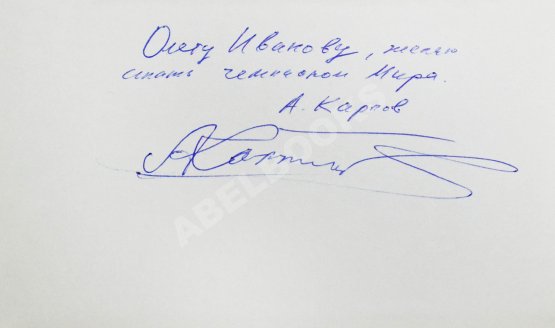 Олегу Иванову, желаю
стать чемпионом Мира.
А. Карпов
ABELBOOKS